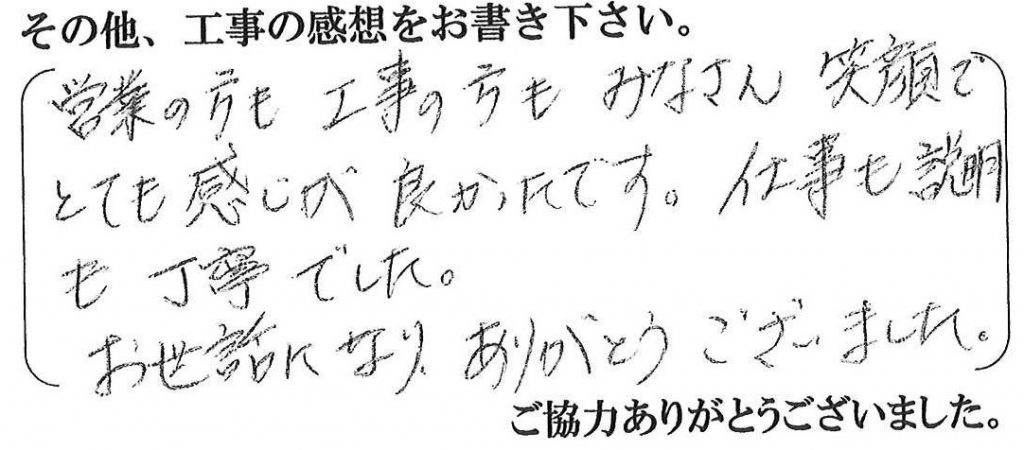 その他、工事の感想をお書き下さい。
営業の方も 工事の方も みなさん 笑顔で
とても感じが 良かったです。仕事も説明
も 丁寧でした。
お世話になり、ありがとうございました。
ご協力ありがとうございました。